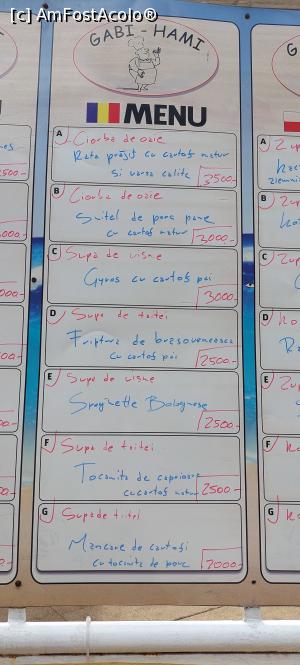 [c] AmFostAcolo®
GABI - HAMI
MENU
A Ciorba de oaie
Rata prăjit cu cartof natur
si varza calita 3500.-
B Ciorba de oaie
Snitel de porc pane
cu cartof natur 3000.-
C Supa de visne
Gyros cu cartof pai
3000.-
D Supa de taitei
Friptura de brasoveneasca
cu cartof pai 2500.-
E Supa de visne
Spaghette Bolognese
2500.-
F Supa de taitei
Tocanita de
cu cartof natur 2500.-
G Supa de
Mancare de cartofi
cu tocanita de porc 2000.-